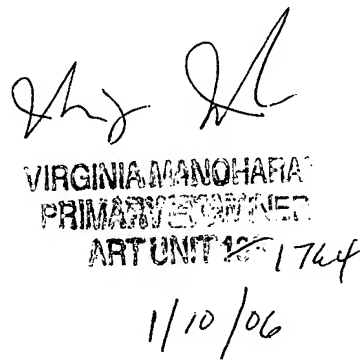 VIRGINIA MANOHARA
PRIMARY EXAMINER
ART UNIT 1764
1/10/06